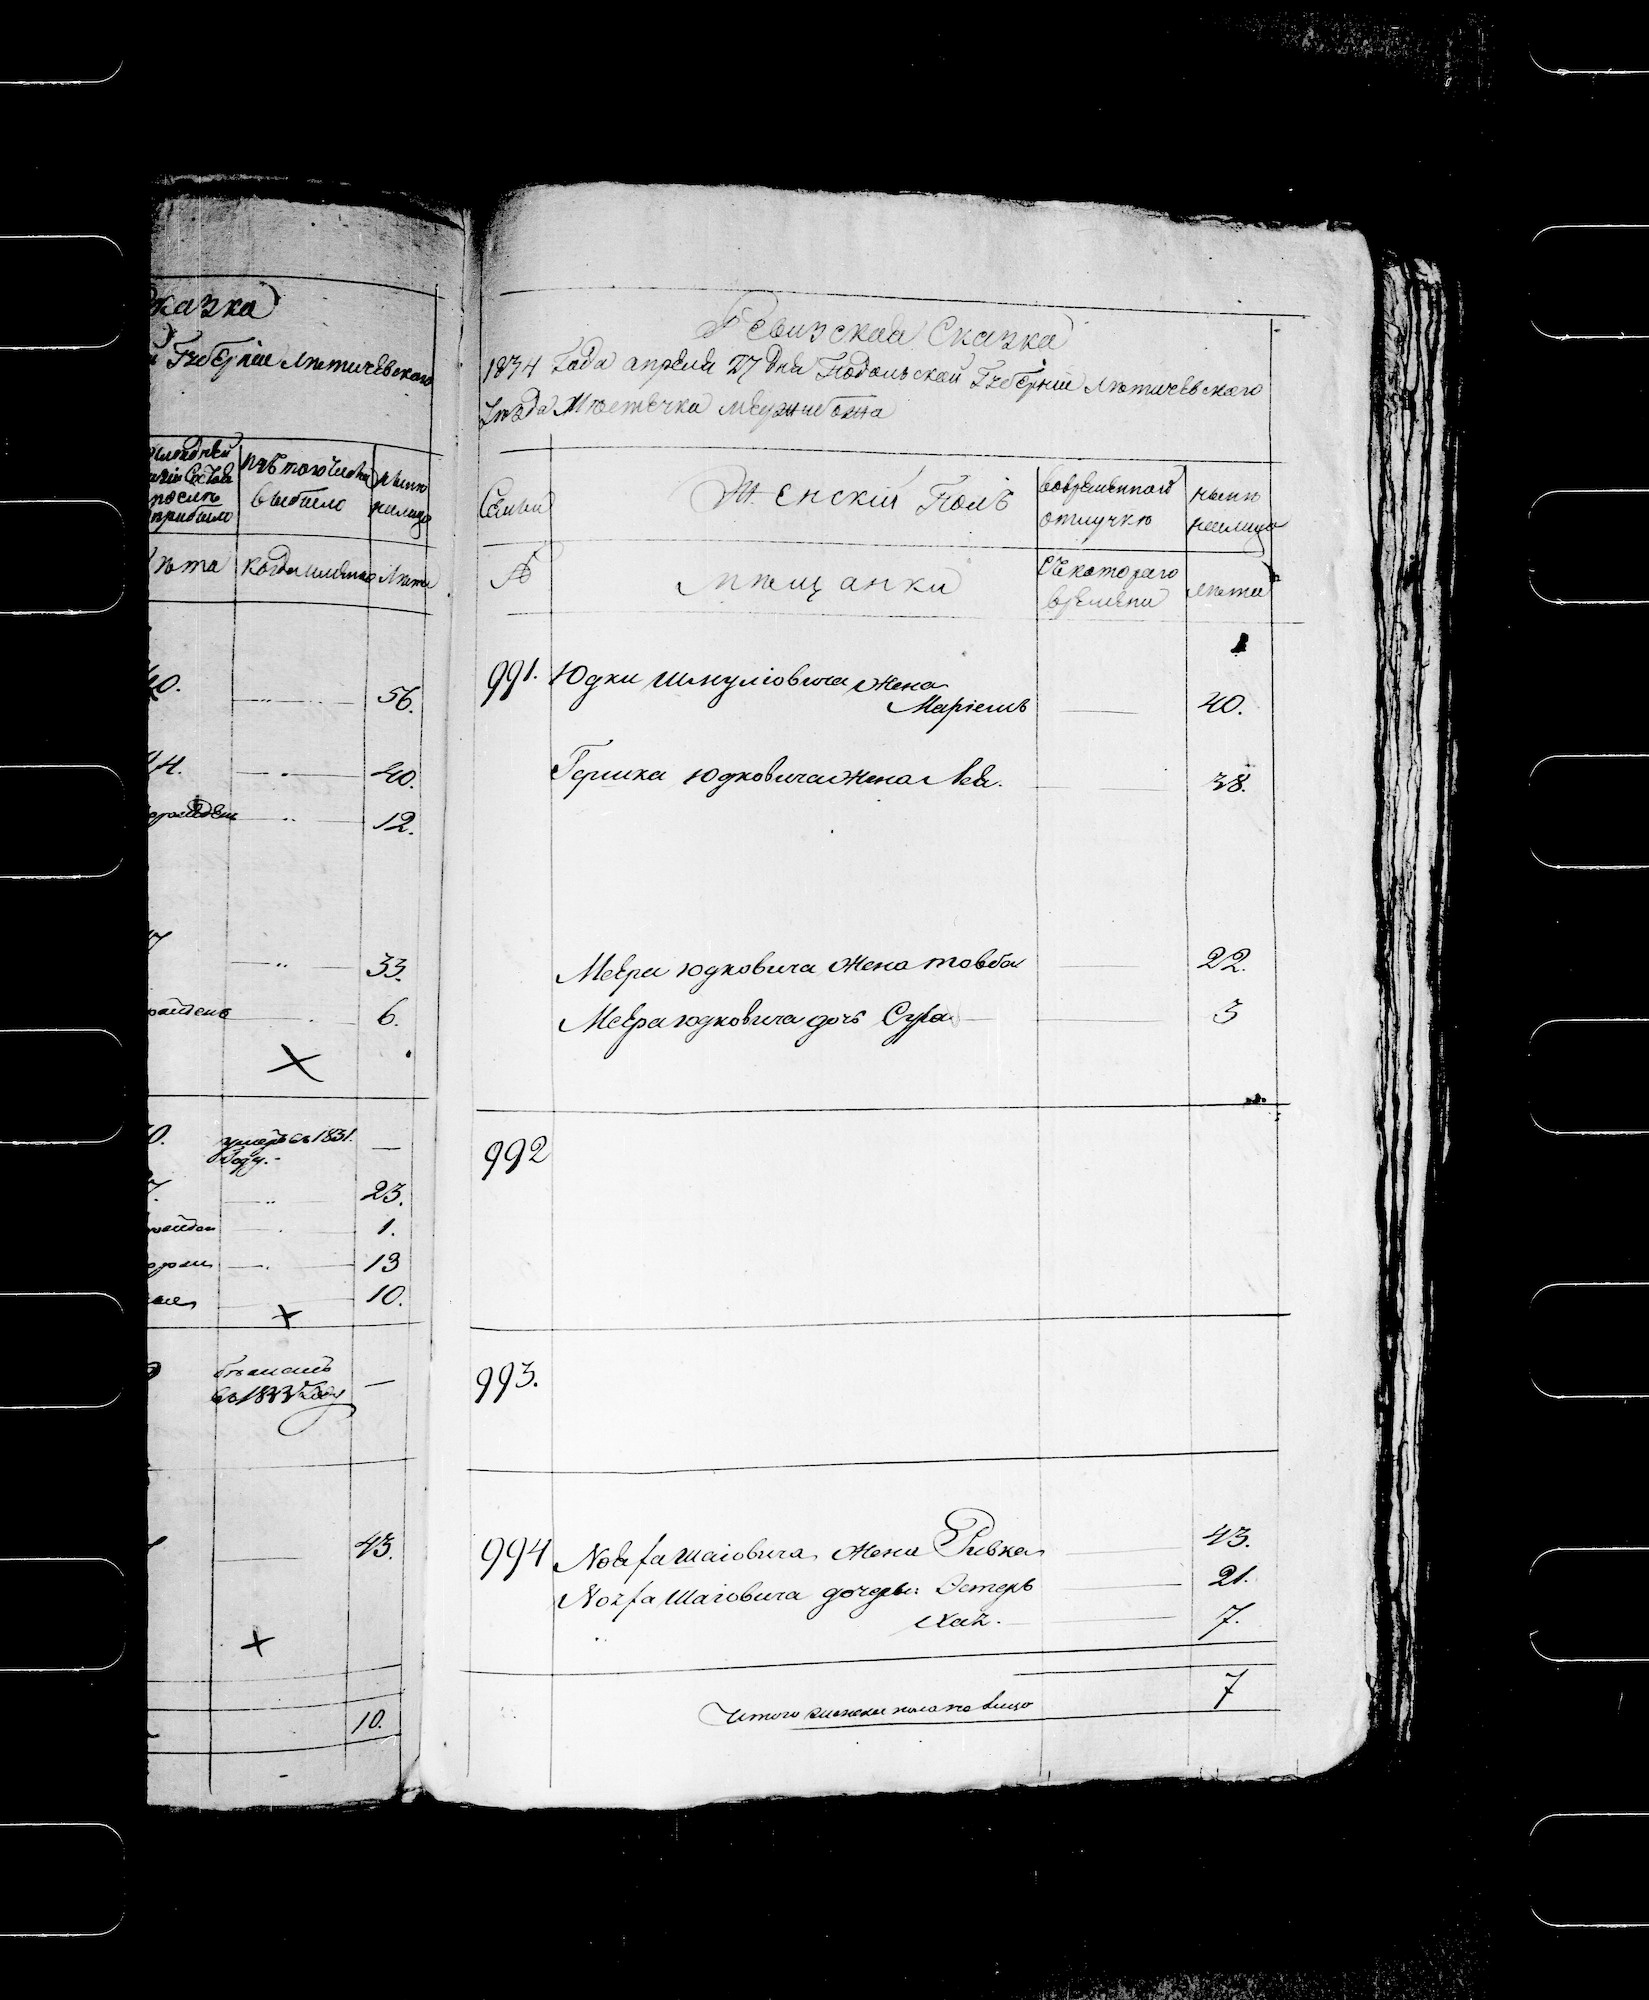 сказка
Губерніи Летичевского
изъ того числа
выбыло
нынѣ
налицо
прибыло
лѣта
когда именно
Лѣта
40.
56.
44.
40.
12.
33.
6.
умеръ въ 1831.
Году.
23.
1.
13
10.
въ 1833 Году
43.
10.
Ревизская Сказка
1834 Года апреля 27 Дня Подольской Губерніи Летичевского
Уезда Местечка Меджибожа
Семьи
Женскій Полъ
вовременной
отлучке
ныне
налицо
№
мещанки
Съ котораго
времени
лета
991. Юдки Шмуліовича жена
Маріемъ 40.
Гершка Юдковича жена Лея. 38.
Меера Юдковича жена товба 22.
Меера Юдковича дочь Сура 3
992
993.
994 Шаіовича жена Ривка 43.
Шаіовича дочери: Эстеръ 21.
Хая. 7.
Итого женска пола на лицо 7